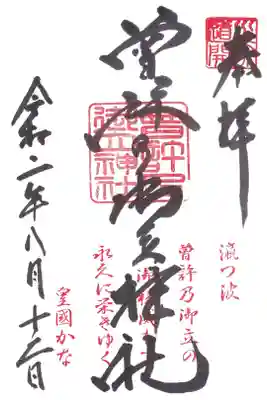 奉拝
道開
曽許乃御立神社
曽許乃御立神社
曽許乃御立の
永久に栄きゆく
皇國かな
令和二年八月十二日